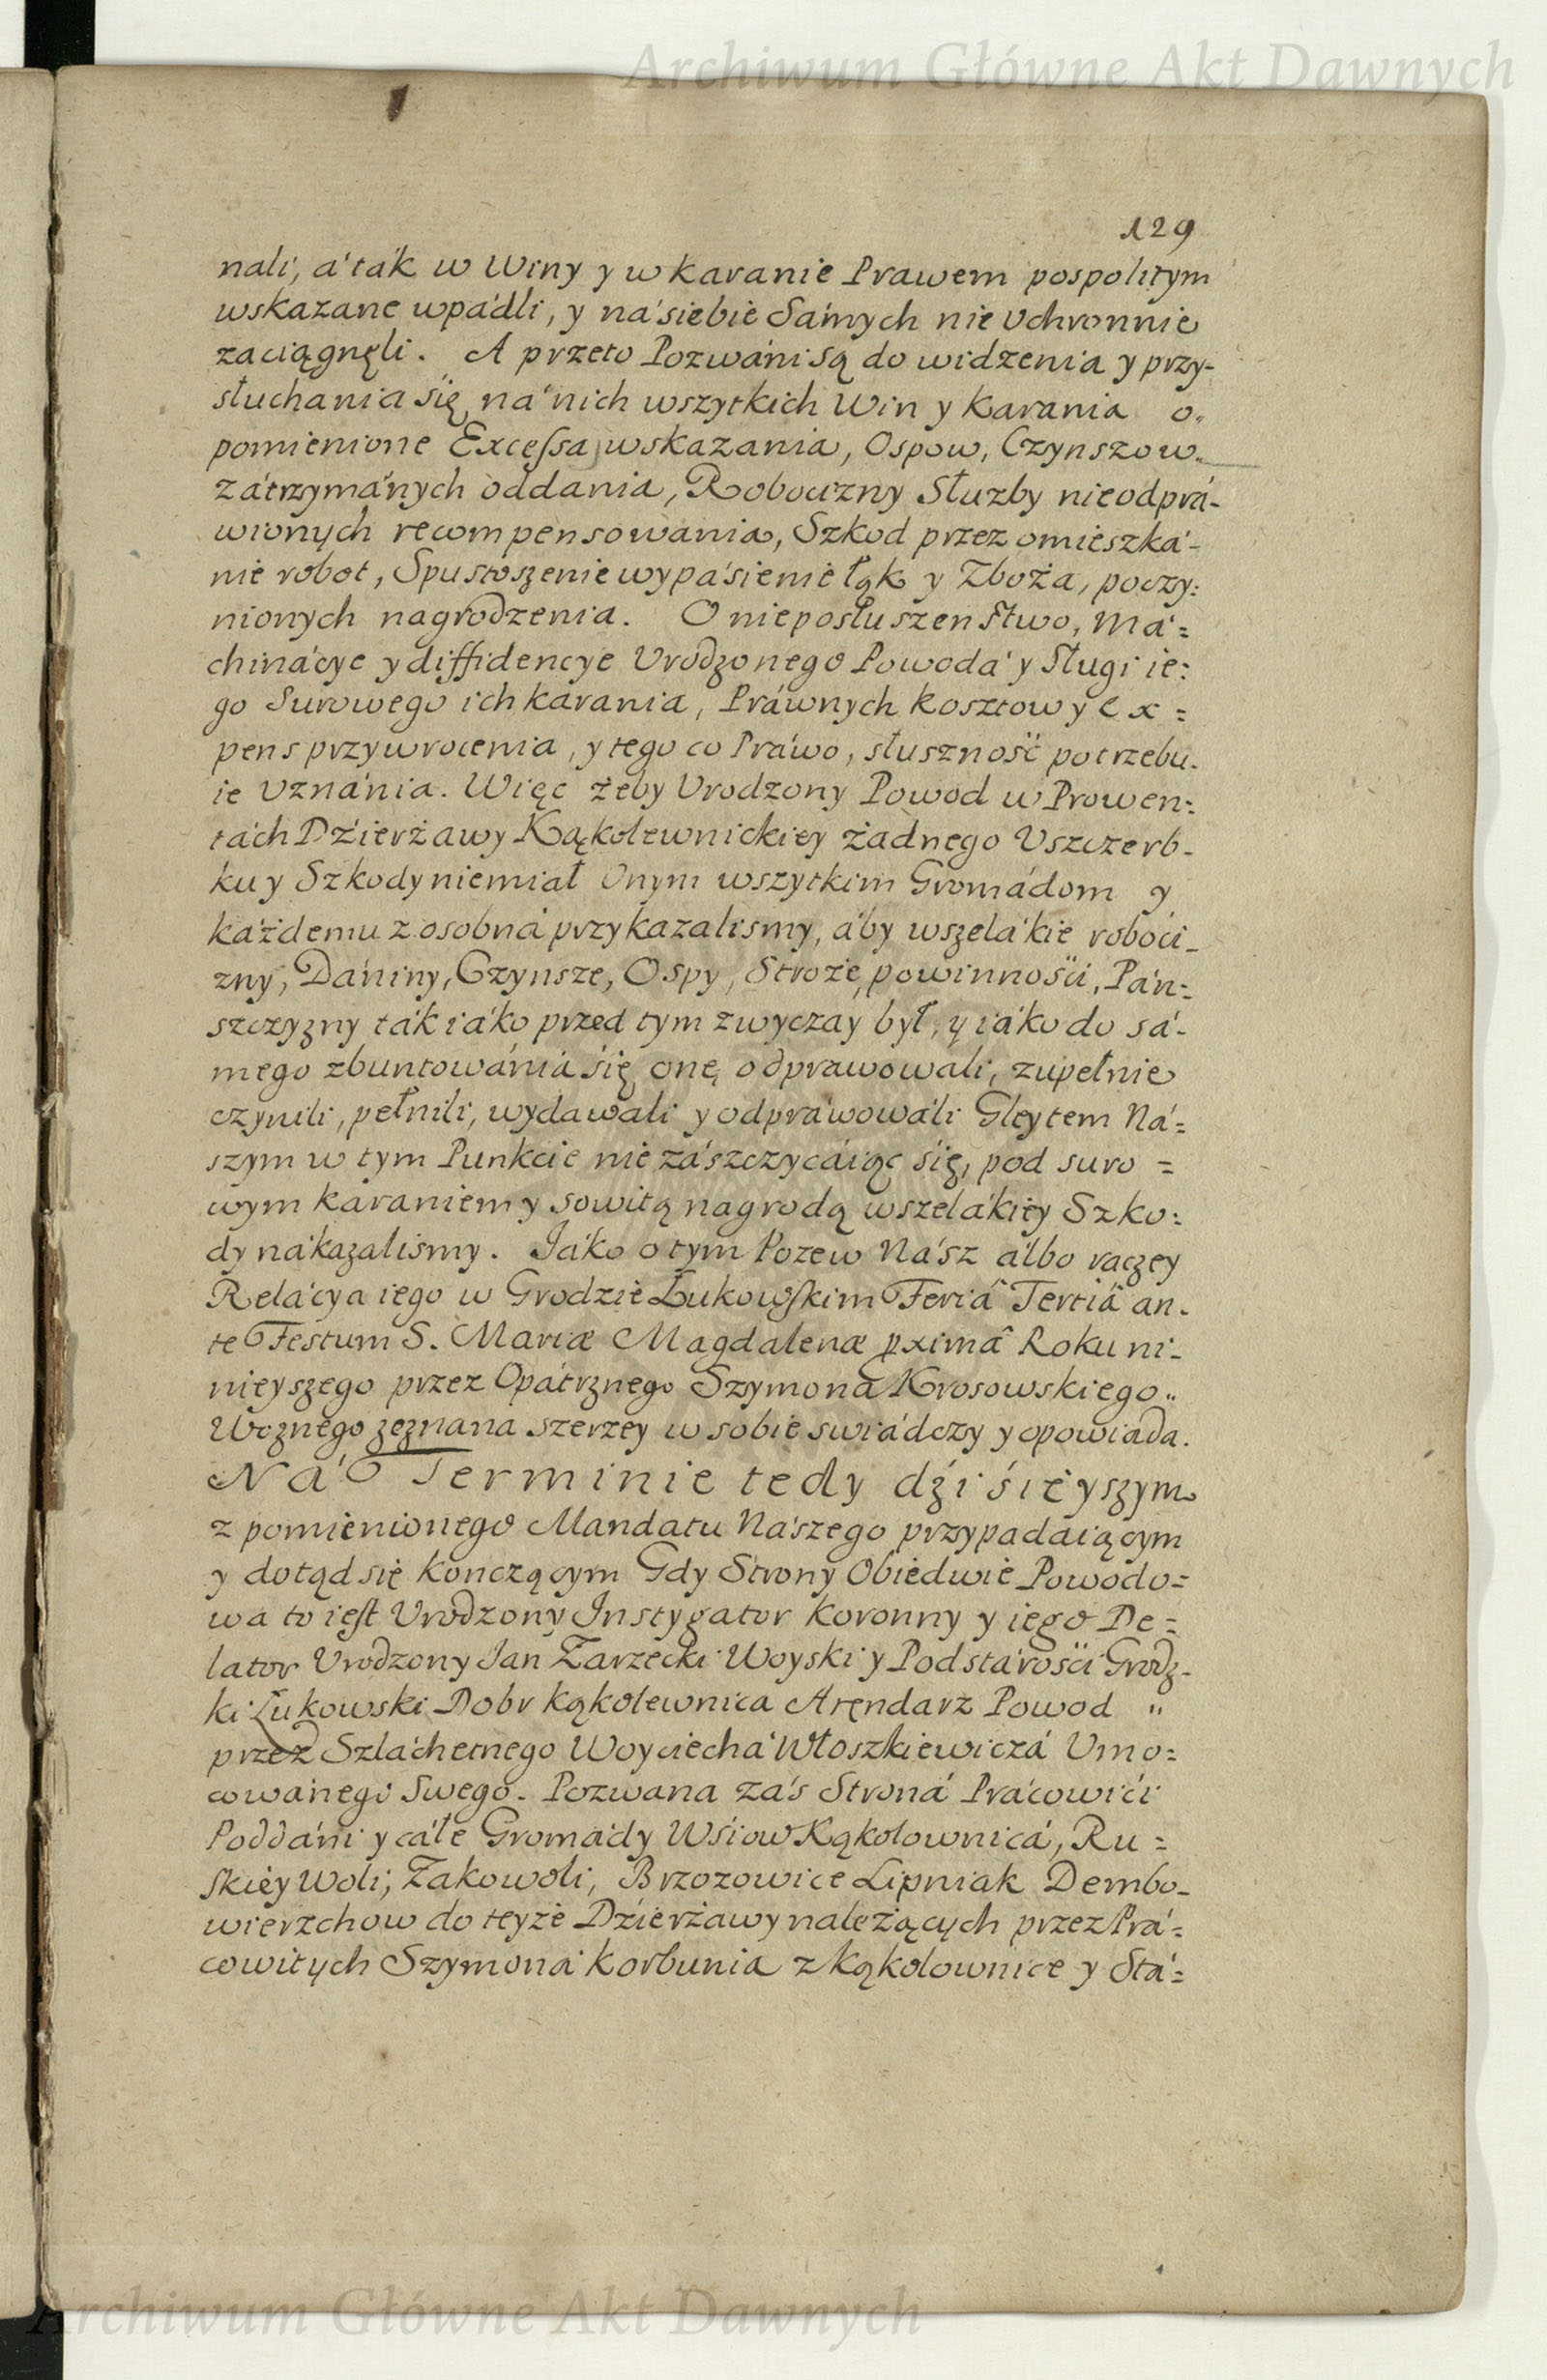 Archiwum Główne Akt Dawnych
129
nali, á ták w Winy y w karanie Prawem pospolitym
wskazane wpádli, y ná siebie Sámych nie Vchronnie
zaciągnęli. A przeto Pozwáni są do widzenia y przy-
słuchania się ná nich wszytkich Win y karania o-
pomienione Excessa wskazania, Ospow, Czynszow
zátrzymánych oddania, Robocizny Służby nieodprá-
wionych recompensowania, Szkod przez omieszká-
nie robot, Spustoszenie wypásienie łąk y Zboża, poczy:
nionych nagrodzenia. O nieposłuszenstwo, má=
chinácye y diffidencye Vrodzonego Powodá y Sługi ie:
go Surowego ich karania, Práwnych kosztow y ex=
pens przywrocenia, y tego co Práwo, słuszność potrzebu-
ie Vznánia. Więc żeby Vrodzony Powod w Prowen:
tách Dźierżawy Kąkolewnickiey żadnego Vszczerb-
ku y Szkody niemiał Onym wszytkim Gromádom y
káżdemu z osobná przykazalismy, áby wszelákie roboci-
zny, Dániny, Czynsze, Ospy, Stroże, powinnośći, Pán:
szczyzny ták iáko przed tym zwyczay był, y iáko do sá-
mego zbuntowánia się onę odprawowali, zupełnie
czynili, pełnili, wydawali y odpráwowáli Gleytem Ná=
szym w tym Punkcie nie zászczycáiąc się, pod suro=
wym karaniem y sowitą nagrodą wszelákiey Szko:
dy nákazalismy. Jáko o tym Pozew Nász álbo raczey
Relácya iego w Grodzie Łukowskim Feriâ Tertiâ an-
te Festum S. Mariæ Magdalenæ pximâ Roku ni-
nieyszego przez Opátrznego Szymoná Krosowskiego
Woznego zeznana szerzey w sobie swiádczy y opowiada.
Ná Terminie tedy dźiśieyszym
z pomienionego Mandatu Nászego przypadaiącym
y dotąd się konczącym Gdy Strony Obiedwie Powodo=
wa to iest Vrodzony Instygator Koronny y iego De=
lator Vrodzony Jan Zarzecki Woyski y Podstárośći Grodz-
ki Łukowski Dobr Kąkolewnica Aręndarz Powod
przez Szláchetnego Woyciechá Włoszkiewiczá Vmo=
cowánego Swego. Pozwana zás Stroná Prácowići
Poddáni y cáłe Gromády Wsiow Kąkolownicá, Ru=
skiey Woli, Zakowoli, Brzozowice Lipniak Dembo-
wierzchow do teyże Dźierżawy należących przez Prá=
cowitych Szymoná Korbunia z Kąkolownice y Stá=
Archiwum Główne Akt Dawnych